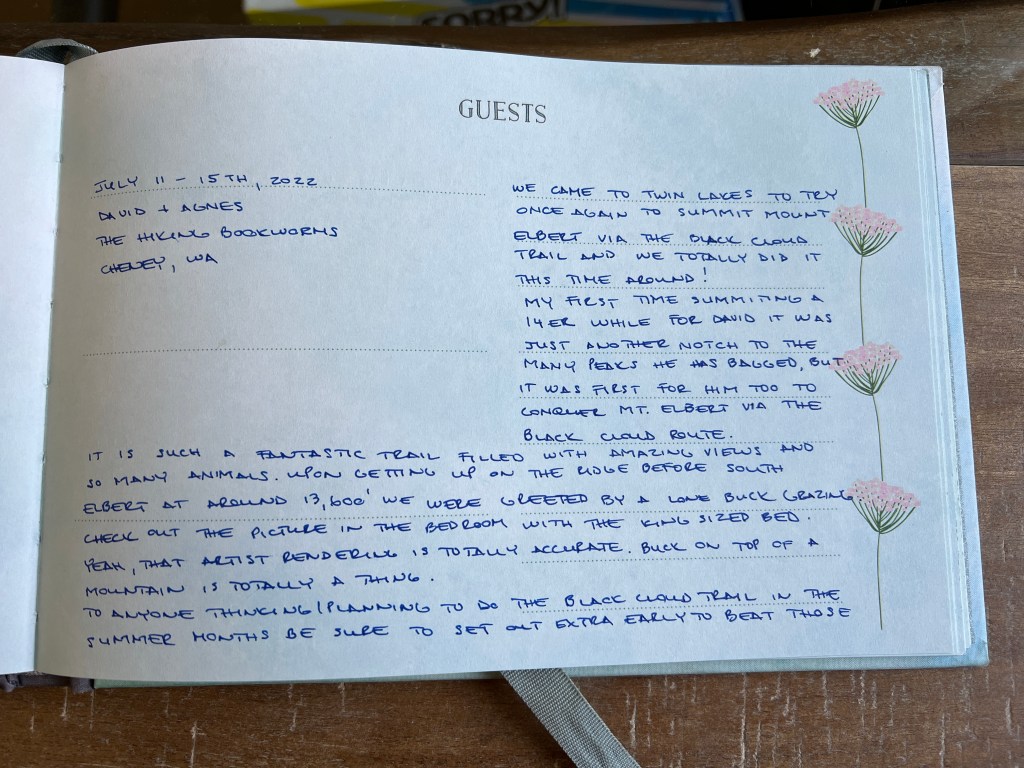 SORRY!
GUESTS
JULY 11 - 15TH, 2022
DAVID + AGNES
THE HIKING BOOKWORMS
CHENEY, WA
WE CAME TO TWIN LAKES TO TRY
ONCE AGAIN TO SUMMIT MOUNT
ELBERT VIA THE BLACK CLOUD
TRAIL AND WE TOTALLY DID IT
THIS TIME AROUND!
MY FIRST TIME SUMMITING A
14ER WHILE FOR DAVID IT WAS
JUST ANOTHER NOTCH TO THE
MANY PEAKS HE HAS BAGGED, BUT
IT WAS FIRST FOR HIM TOO TO
CONQUER MT. ELBERT VIA THE
BLACK CLOUD ROUTE.
IT IS SUCH A FANTASTIC TRAIL FILLED WITH AMAZING VIEWS AND
SO MANY ANIMALS. UPON GETTING UP ON THE RIDGE BEFORE SOUTH
ELBERT AT AROUND 13,600' WE WERE GREETED BY A LONE BUCK GRAZING
CHECK OUT THE PICTURE IN THE BEDROOM WITH THE KING SIZED BED.
YEAH, THAT ARTIST RENDERING IS TOTALLY ACCURATE. BUCK ON TOP OF A
MOUNTAIN IS TOTALLY A THING.
TO ANYONE THINKING/PLANNING TO DO THE BLACK CLOUD TRAIL IN THE
SUMMER MONTHS BE SURE TO SET OUT EXTRA EARLY TO BEAT THOSE